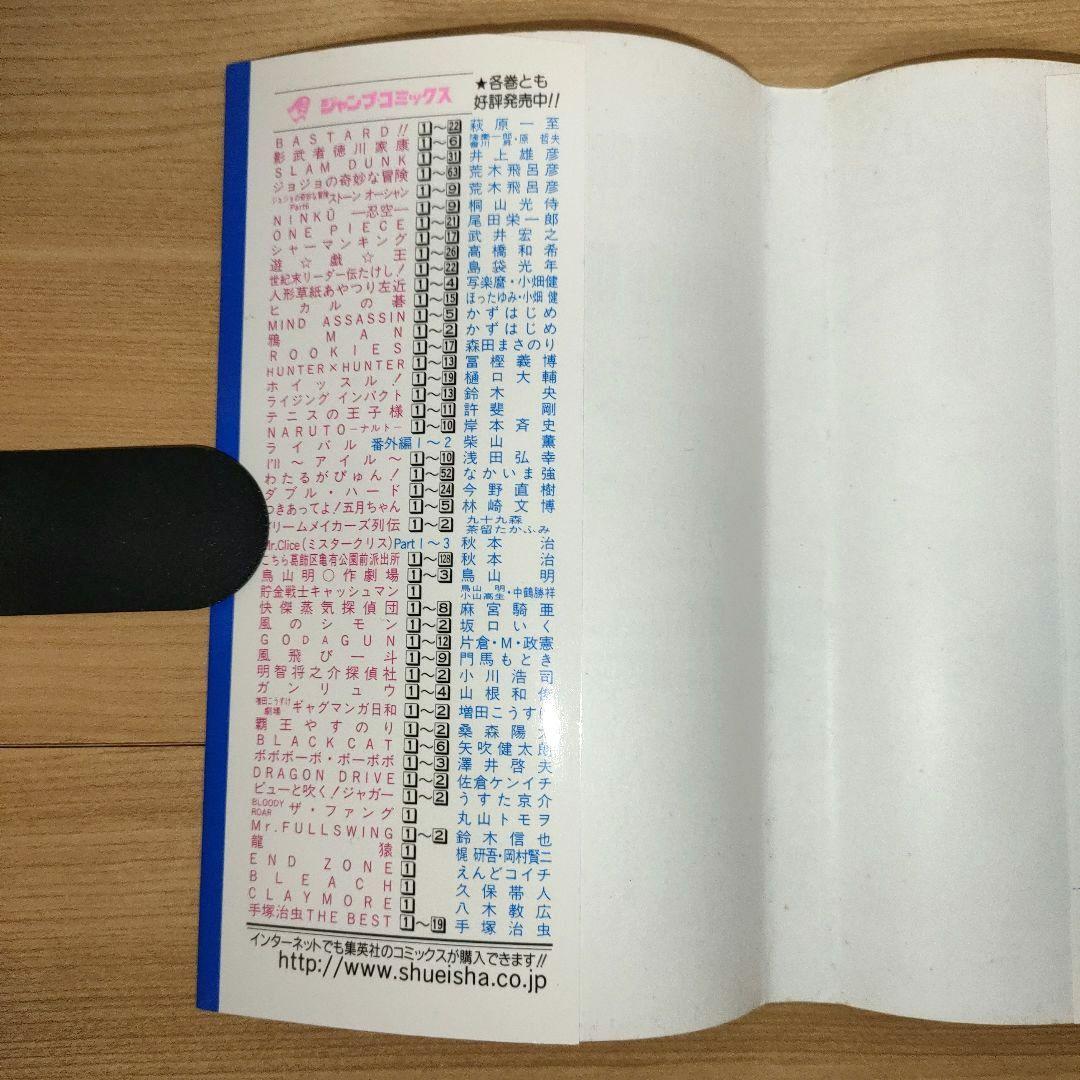 ジャンプ・コミックス
★各巻とも
好評発売中!!
BASTARD!! 1～22 萩原一至
影武者徳川家康 1～6 隆慶一郎・原哲夫
SLAM DUNK 1～31 井上雄彦
ジョジョの奇妙な冒険 1～63 荒木飛呂彦
ジョジョの奇妙な冒険Part6 ストーン オーシャン 1～9 荒木飛呂彦
NINKŪ ―忍空― 1～9 桐山光侍
ONE PIECE 1～21 尾田栄一郎
シャーマンキング 1～17 武井宏之
遊☆戯☆王 1～26 高橋和希
世紀末リーダー伝たけし! 1～22 島袋光年
人形草紙あやつり左近 1～4 写楽麿・小畑健
ヒカルの碁 1～15 ほったゆみ・小畑 健
MIND ASSASSIN 1～5 かずはじめ
鴉 MAN 1～2 かずはじめ
ROOKIES 1～17 森田まさのり
HUNTER×HUNTER 1～13 冨樫義博
ホイッスル! 1～19 樋口大輔
ライジング インパクト 1～13 鈴木央
テニスの王子様 1～11 許斐剛
NARUTO―ナルト― 1～10 岸本斉史
ライバル 番外編1～2 柴山薫
I'll ～アイル～ 1～10 浅田弘幸
わたるがぴゅん! 1～52 なかいま強
ダブル・ハード 1～24 今野直樹
つきあってよ!五月ちゃん 1～5 林崎文博
ドリームメイカーズ列伝 1～2 九十九森 茶留たかふみ
Mr.Clice(ミスタークリス) Part1～3 秋本治
こちら葛飾区亀有公園前派出所 1～128 秋本治
鳥山明○作劇場 1～3 鳥山明
貯金戦士キャッシュマン 1 鳥山 明 小山高生・中鶴勝祥
快傑蒸気探偵団 1～8 麻宮騎亜
風のシモン 1～2 坂口いく
GODAGUN 1～12 片倉・M・政憲
風飛び一斗 1～9 門馬もとき
明智将之介探偵社 1～2 小川浩司
ガンリュウ 1～4 山根和俊
増田こうすけ劇場 ギャグマンガ日和 1～2 増田こうす
覇王やすのり 1～2 桑森陽
BLACK CAT 1～6 矢吹健太朗
ボボボーボ・ボーボボ 1～3 澤井啓夫
DRAGON DRIVE 1～2 佐倉ケンイチ
ピューと吹く!ジャガー 1～2 うすた京介
BLOODY ROAR ザ・ファング 1 丸山トモヲ
Mr.FULLSWING 1～2 鈴木信也
龍猿 1 梶 研吾・岡村賢二
END ZONE 1 えんどコイチ
BLEACH 1 久保帯人
CLAYMORE 1 八木教広
手塚治虫THE BEST 1～19 手塚治虫
インターネットでも集英社のコミックスが購入できます!!
http://www.shueisha.co.jp